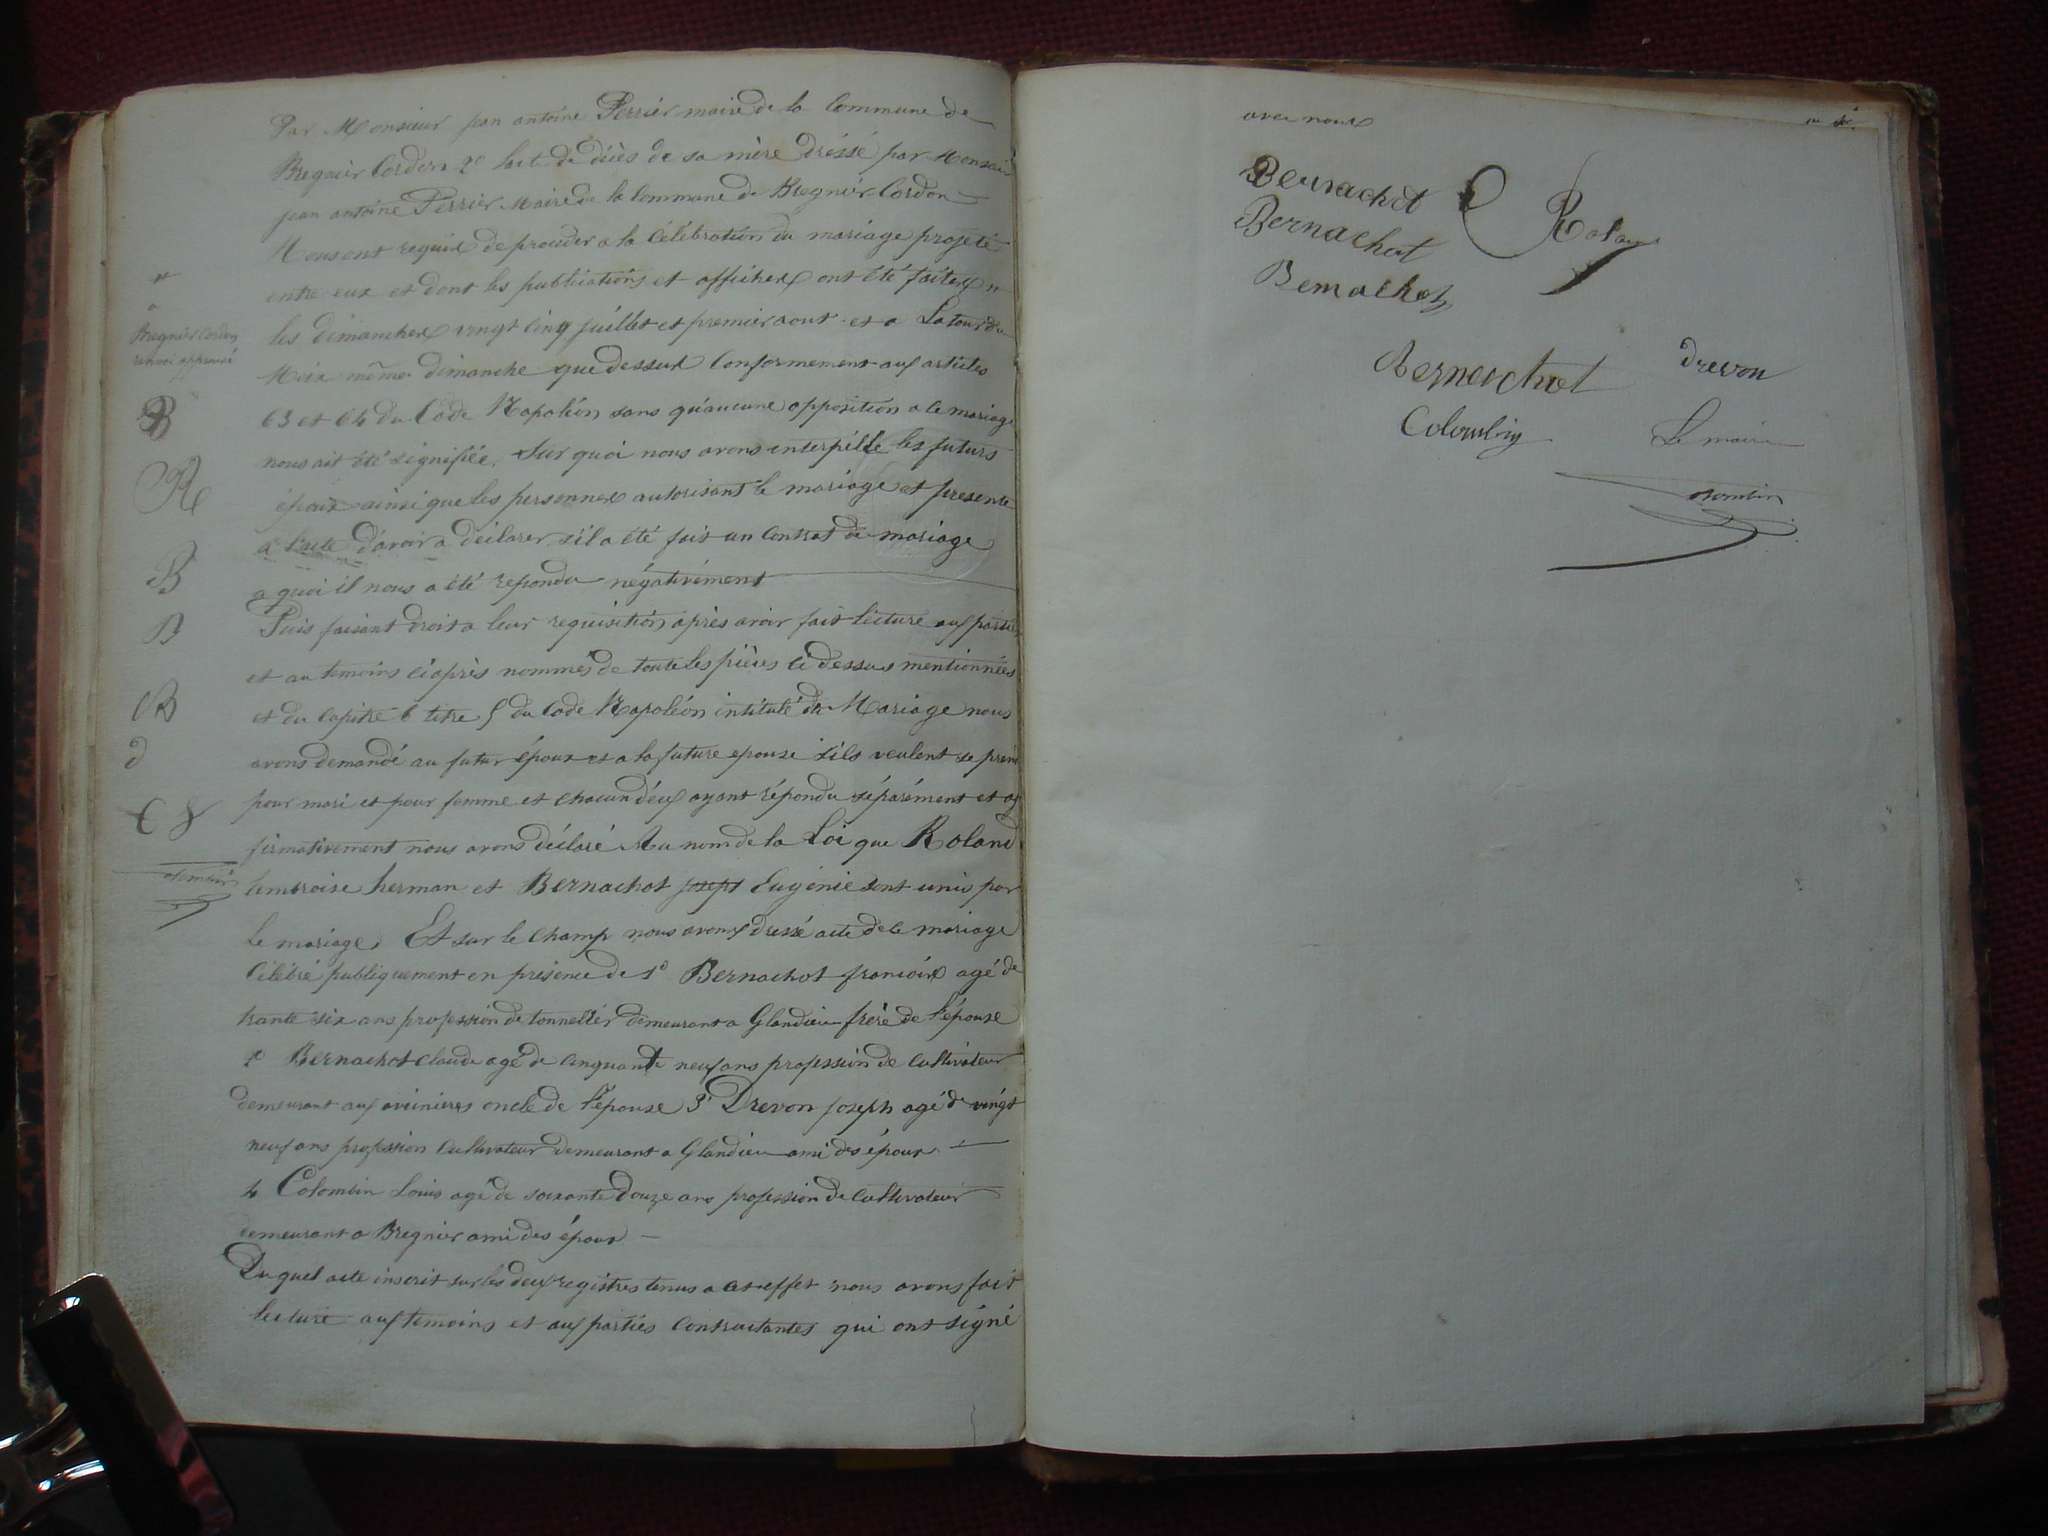 Par Monsieur jean antoine Perrier maire de la Commune de
Bregnier Cordon 2º lact de décès de sa mère dréssé par Monsieu
jean antoine Perrier Maire de la Commune de Bregnier Cordon
Nous ont requis de proceder a la Célébration du mariage projeté
entre eux et dont les publications et affiches ont été faites
les dimanches vingt cinq juillet et premier aout et a Latour du
même dimanche que dessus Conformement aux articles
63 et 64 du Code Napoléon sans qu'aucune opposition a ce mariage
nous ait été signifiée. Sur quoi nous avons interpéllé les futurs
époux ainsi que les personnes autorisant le mariage et presente
a l'acte d'avoir a déclarer s'il a été fait un Contrat de mariage
a quoi il nous a été repondu négativément
Puis faisant droit a leur requisition après avoir fait lecture aux parties
et au temoins ci après nommés de toute les pièces ci dessus mentionnées
et du Capitre 6 titre 5 du Code Napoléon intitulé du Mariage nous
avons demandé au futur époux et a la future epouse s'ils veulent se prend
pour mari et pour femme et chacun d'eux ayant répondu séparément et af
firmativement nous avons déclaré Au nom de la Loi que Roland
Ambroise herman et Bernachot joseph Eugénie sont unis par
le mariage. Et sur le champ nous avons dressé acte de ce mariage
Célébré publiquement en présence de 1º Bernachot francois agé de
trante six ans profession de tonnellier demeurant a Glandieu frère de l'épouse
2º Bernachot claude agé de cinquante neuf ans profession de Cultivateur
demeurant aux avinières oncle de l'épouse 3º Drevon joseph agé de vingt
neuf ans profession Cultivateur demeurant a Glandieu ami des époux
4 Colombin Louis agé de soixante douze ans profession de Cultivateur
demeurant a Bregnier ami des époux
Du quel acte inscrit sur les deux registres tenus a cet effet nous avons fait
lecture aux temoins et aux parties Contractantes qui ont signé
Bregnier Cordon
renvoi approuvé
B
R
B
B
B
d
C
avec nous
Bernachot Roland
Bernachot
Bernachot
Bernachot drevon
Colombin Le maire